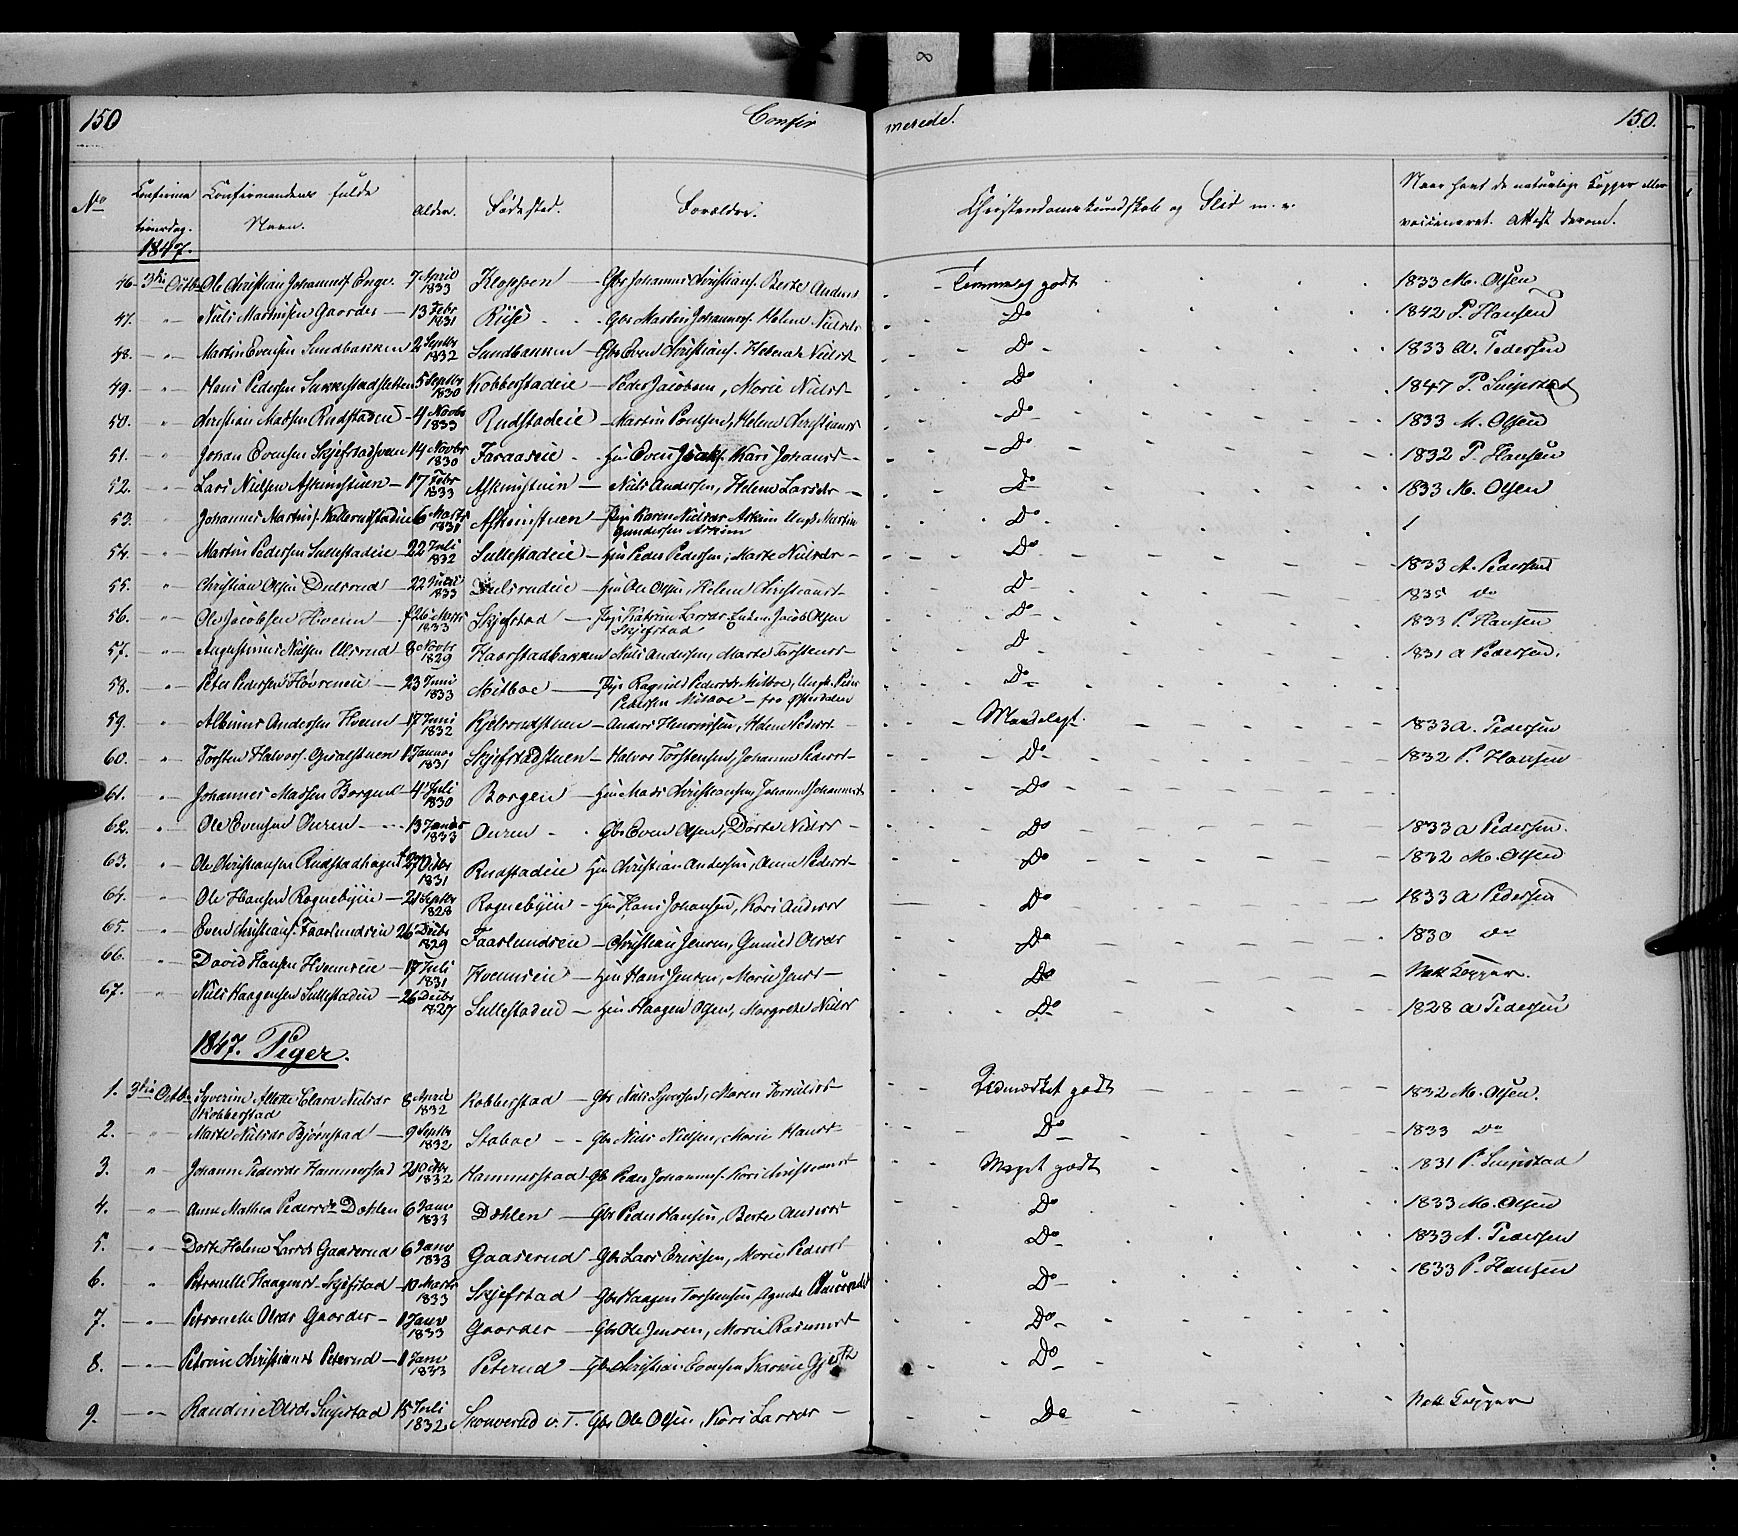 150 Confir merede. 150.
No Confirmationsdag. Confirmandens fulde Navn. Alder. Fødested. Forældre. Christendomskundskab og Flid m. v. Naar havt de naturlige Kopper eller vaccineret. Attest derom.
1847.
46. 3die Octbr Ole Christian Johannes. Enger. 7 April 1833 Kloppen Gbr Johannes Christians. Berte Anders Temmelig godt 1833 M. Olsen
47. " Niels Martinsen Gaarder 13 Febr 1831 Riise Gbr Martin Johannes. Helene Nielsdr Do 1842 P. Hansen
48. " Martin Evensen Sundbakken 2 Septbr 1832 Sundbakken Gbr Even Christians. Helene Nielsd Do 1833 A. Pedersen
49. " Hans Pedersen Sukkestadsletten 5 Septbr 1830 Kobberstadeie Peder Jacobsen, Marie Nielsd Do 1847 P. Snipstad
50. " Christian Madsen Rudstadeie 4 Novbr 1833 Rudstadeie Martin Poulsen, Helene Christiansd Do 1833 M. Olsen
51. " Johan Evensen Skjefstadsveen 14 Novbr 1830 Faraaseie Hm Even Joh. Kari Johansd Do 1832 P. Hansen
52. " Lars Nielsen Askimstuen 17 Febr 1833 Askimstuen Niels Andersen, Helene Larsdr Do 1833 M. Olsen
53. " Johannes Martins. Kollerudstadeie 6 Marts 1831 Askimstuen Pige Karen Nielsdr Askim Ungk Martin Gundersen Askim Do
54. " Martin Pedersen Sullestadeie 22 Juli 1832 Sullestadeie Hm Peder Pedersen, Marte Nielsdr Do 1833 A. Pedersen
55. " Christian Olsen Dælsrud 22 Juni 1833 Dælsrudeie Hm Ole Olsen, Helene Christiansd Do 1835 do
56. " Ole Jacobsen Hveem f 26 1833 Skjefstad Pige Katrine Larsdr Enkem Jacob Olsen Skjefstad Do 1833 P. Hansen
57. " Augustinus Nielsen Ulsrud 8 Novbr 1829 Haarstadbakken Niels Andersen, Marte Torstensd Do 1831 A Pedersen.
58. " Peter Pedersen Høvreneie 23 Juni 1833 Mælboe Pige Ragnild Pedersdr Mælboe, Ungk. Peder Pedersen Mælboe fra Østerdalen Do
59. " Albinus Andersen Hveem 17 Juni 1832 Kjelsrudstuen Anders Henriksen, Helene Pedersd Maadeligt. 1833 A. Pedersen
60. " Torsten Halvors. Gjvalstuen 1 Januar 1831 Skjefstadstuen Halvor Torstensen, Johanne Pedersd Do 1832 P. Hansen
61. " Johannes Madsen Borgen 4 Juli 1830 Borgen Hm Mads Christiansen Johanne Johannesd Do
62. " Ole Evensen Ouren 13 Januar 1833 Ouren Gbr Even Olsen, Dorte Nielsd Do 1833 A Pedersen.
63. " Ole Christiansen Rudstadhagen 27 Octbr 1831 Rudstadeie Hm Christian Andersen, Anne Pedersd Do 1832 M. Olsen
64. " Ole Hansen Rognebyeie 21 Septbr 1828 Rognebyeie Hm Hans Johansen, Kari Andersd Do 1833 A Pedersen
65. " Even Christians. Faarlundeie 26 Decbr 1829 Faarlundseie Christian Jensen, Gunild Olsdr Do 1830 do
66. " David Hansen Hveemseie 17 Juli 1831 Hveemseie Hm Hans Jensen, Marie Jensd Do Natt Kopper.
67. " Niels Haagensen Sullestadeie 26 Decbr 1827 Sullestadeie Hm Haagen Olsen, Margrete Nielsd Do 1828 A Pedersen
1847. Piger.
1. 3die Octbr Syverine Alette Clara Nielsdr Kobberstad 8 April 1832 Kobberstad Gbr Niels Syversen, Maren Torkildsd Udmærket godt 1832 M. Olsen.
2. " Marte Nielsdr Bjørnstad 9 Septbr 1832 Staboe Gbr Niels Nielsen, Marie Hansd Do 1833 do
3. " Johanne Pedersdr Hammerstad 21 Octbr 1832 Hammerstad Gbr Peder Johannes. Kari Christiansd Meget godt 1831 P. Snipstad
4. " Anne Mathea Pedersdr Dæhlen 6 Janv 1833 Dæhlen Gbr Peder Hansen, Berte Andersd Do 1833 M. Olsen
5. " Dorte Helene Larsdr Gaaserud 6 Janv 1833 Gaaserud Gbr Lars Ericksen, Marie Pedersd Do 1833 A. Pedersen
6. " Petronelle Haagensd. Skjefstad 10 Marts 1833 Skjefstad Gbr Haagen Torstensen, Agnete Do 1833 P. Hansen
7. " Petronelle Olsdr Gaarder 1 Janv 1833 Gaarder Gbr Ole Jensen, Marie Rasmusd Do
8. " Petrine Christiansd Peterud 1 Janv 1833 Peterud Gbr Christian Evensen Karine Do
9. " Randine Olsdr Snipstad 15 Juli 1832 Skonnerud v. T. Gbr Ole Olsen, Kari Larsdr Do Natt Kopper